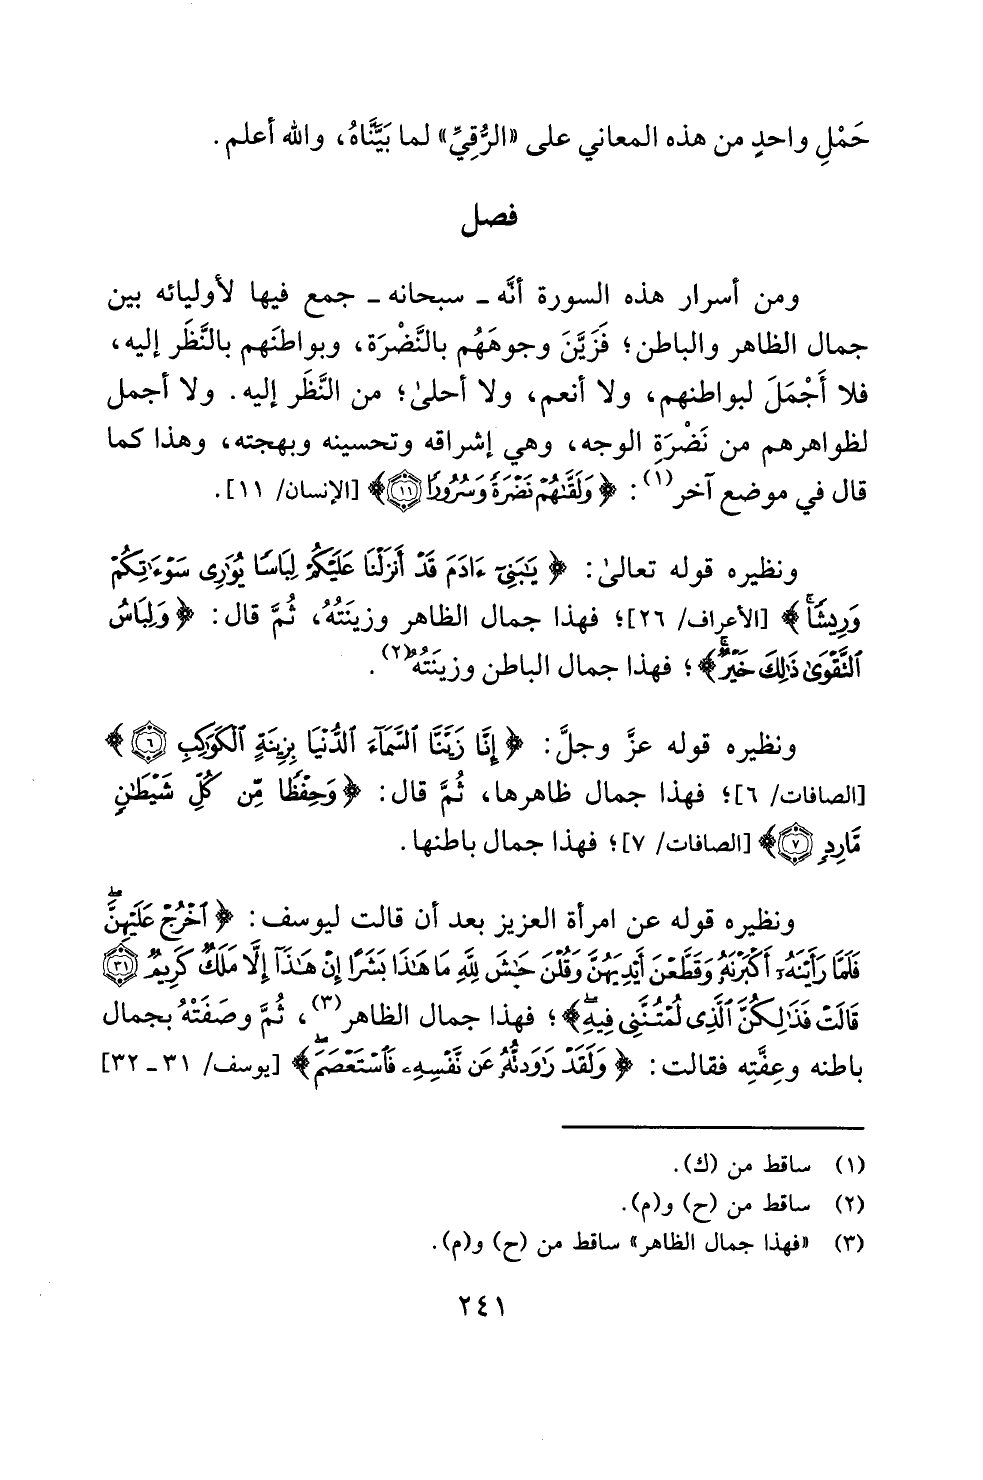 حَمْلِ واحدٍ من هذه المعاني على «الرُّقِيِّ» لما بَيَّنَّاهُ، والله أعلم.
فصل
ومن أسرار هذه السورة أنَّه ـ سبحانه ـ جمع فيها لأوليائه بين
جمال الظاهر والباطن؛ فَزَيَّنَ وجوهَهُم بالنَّضْرَة، وبواطنَهم بالنَّظَر إليه،
فلا أَجْمَلَ لبواطنهم، ولا أنعم، ولا أحلىٰ؛ من النَّظَر إليه. ولا أجمل
لظواهرهم من نَضْرَةِ الوجه، وهي إشراقه وتحسينه وبهجته، وهذا كما
قال في موضع آخر(١): ﴿وَلَقَّىٰهُمْ نَضْرَةً وَسُرُورًا ۝١١﴾ [الإنسان/ ١١].
ونظيره قوله تعالىٰ: ﴿يَٰبَنِىٓ ءَادَمَ قَدْ أَنزَلْنَا عَلَيْكُمْ لِبَاسًا يُوَٰرِى سَوْءَٰتِكُمْ
وَرِيشًا ۖ﴾ [الأعراف/ ٢٦]؛ فهذا جمال الظاهر وزينَتُهُ، ثُمَّ قال: ﴿وَلِبَاسُ
ٱلتَّقْوَىٰ ذَٰلِكَ خَيْرٌ ۚ﴾؛ فهذا جمال الباطن وزينَتُهُ(٢).
ونظيره قوله عزَّ وجلَّ: ﴿إِنَّا زَيَّنَّا ٱلسَّمَآءَ ٱلدُّنْيَا بِزِينَةٍ ٱلْكَوَاكِبِ ۝٦﴾
[الصافات/ ٦]؛ فهذا جمال ظاهرها، ثُمَّ قال: ﴿وَحِفْظًا مِّن كُلِّ شَيْطَٰنٍ
مَّارِدٍ ۝٧﴾ [الصافات/ ٧]؛ فهذا جمال باطنها.
ونظيره قوله عن امرأة العزيز بعد أن قالت ليوسف: ﴿ٱخْرُجْ عَلَيْهِنَّ ۖ
فَلَمَّا رَأَيْنَهُۥٓ أَكْبَرْنَهُۥ وَقَطَّعْنَ أَيْدِيَهُنَّ وَقُلْنَ حَٰشَ لِلَّهِ مَا هَٰذَا بَشَرًا إِنْ هَٰذَآ إِلَّا مَلَكٌ كَرِيمٌ ۝٣١
قَالَتْ فَذَٰلِكُنَّ ٱلَّذِى لُمْتُنَّنِى فِيهِ ۖ﴾؛ فهذا جمال الظاهر(٣)، ثُمَّ وصفَتْهُ بجمال
باطنه وعِفَّتِه فقالت: ﴿وَلَقَدْ رَٰوَدتُّهُۥ عَن نَّفْسِهِۦ فَٱسْتَعْصَمَ ۖ﴾ [يوسف/ ٣١ ـ ٣٢]
(١) ساقط من (ك).
(٢) ساقط من (ح) و(م).
(٣) «فهذا جمال الظاهر» ساقط من (ح) و(م).
٢٤١